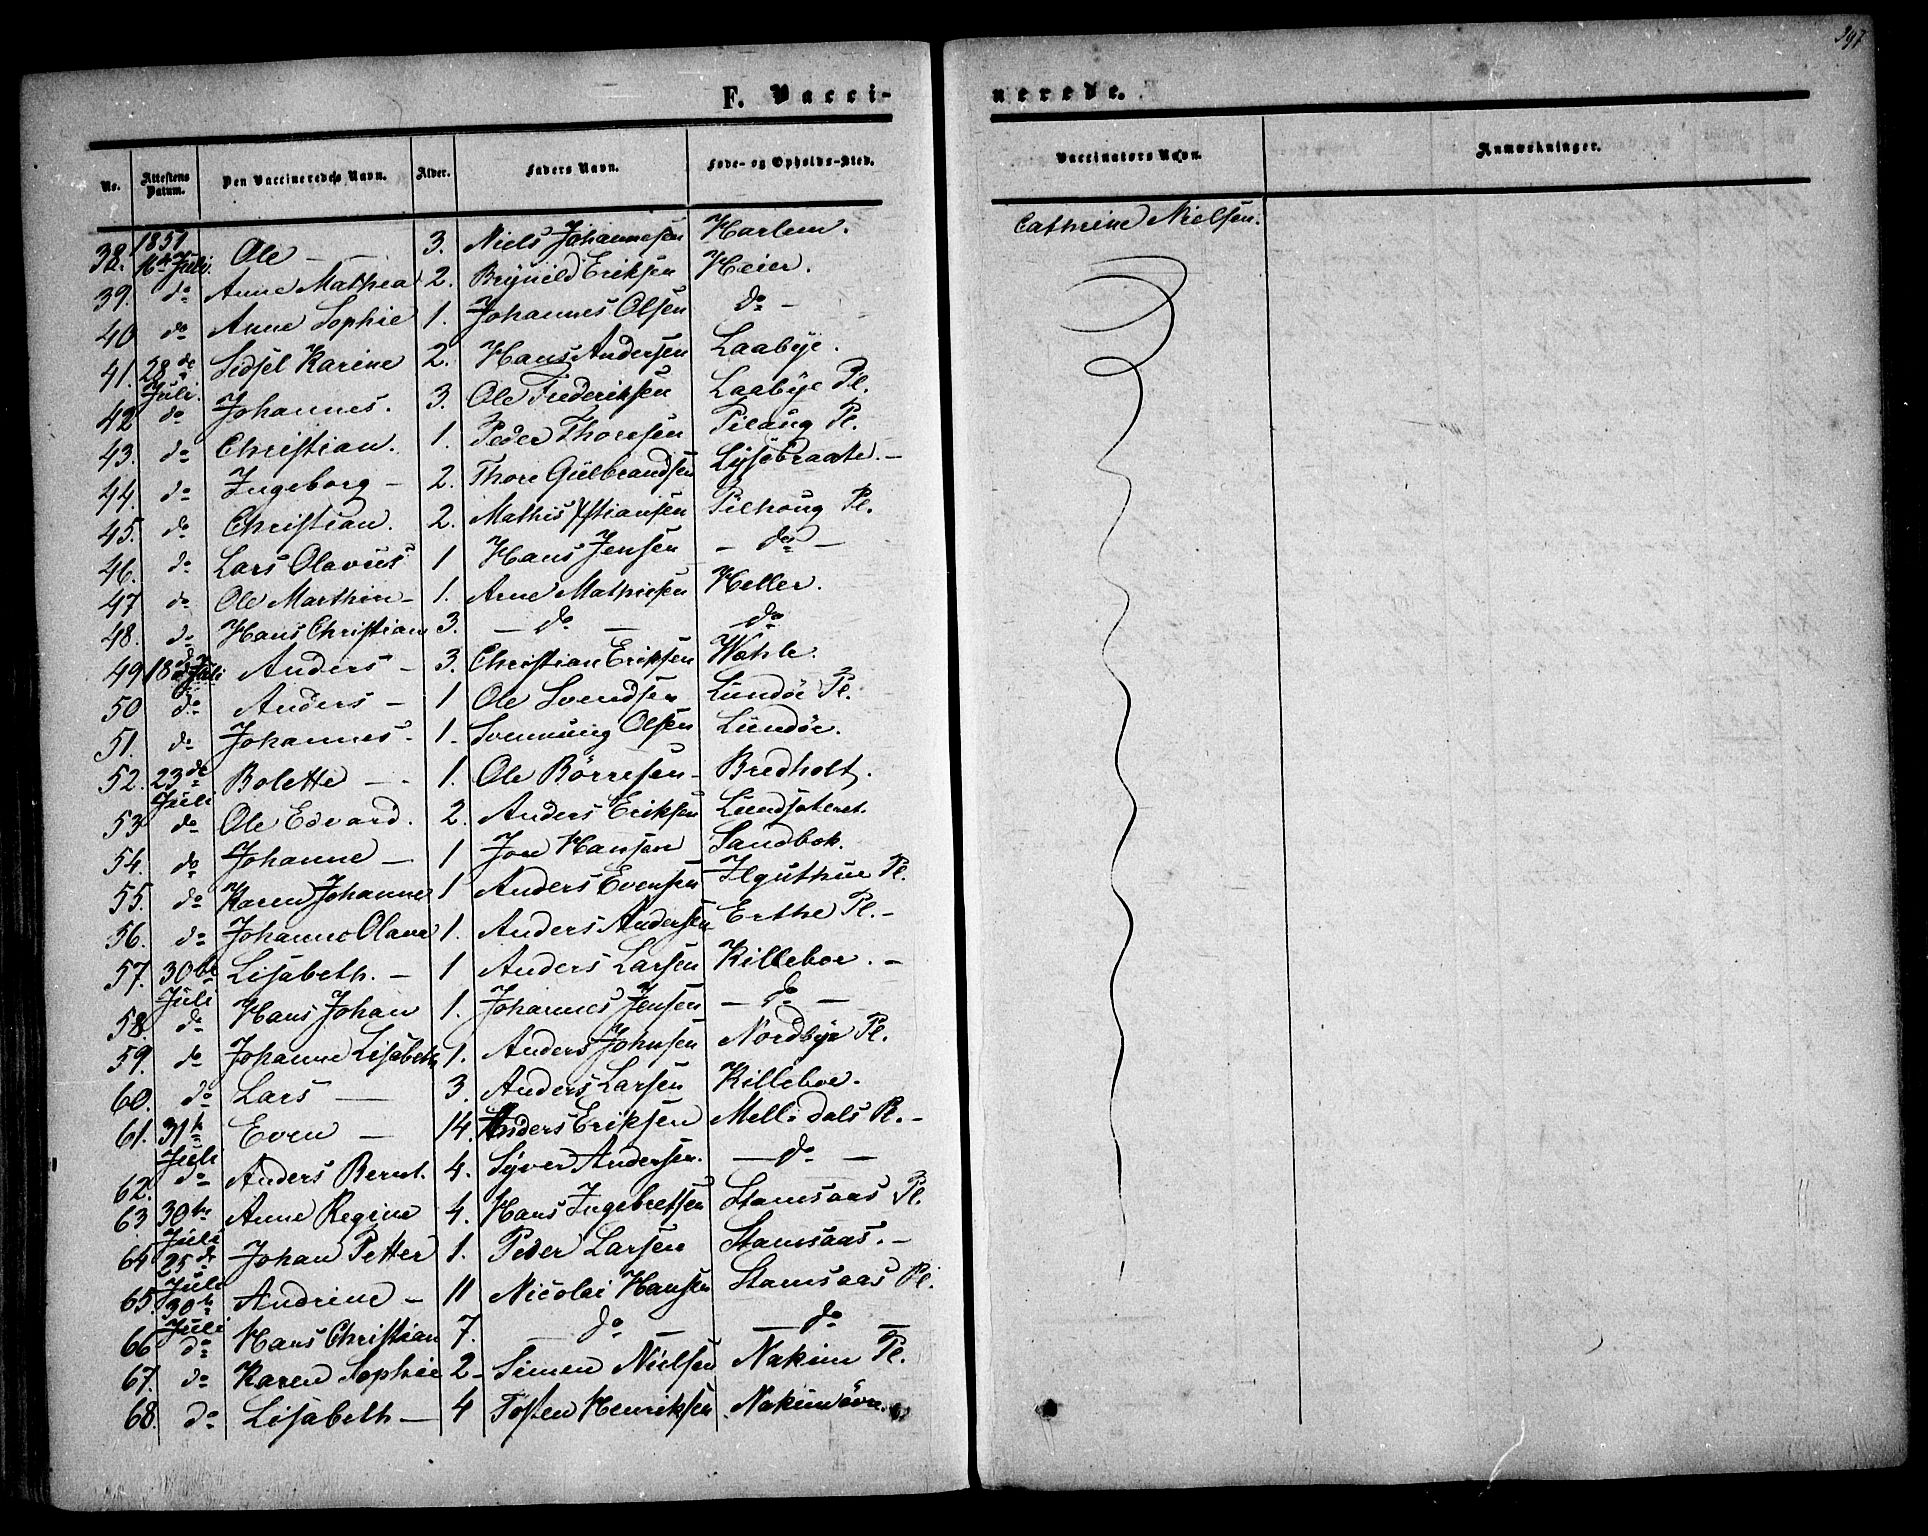 297
F. Vacci-
nerede.
No. Attestens Datum. Den Vaccineredes Navn. Alder. Faders Navn. Føde- og Opholds-Sted. Vaccinators Navn. Anmærkninger.
1851
38. 16de Juli. Ole — 3. Niels Johannesen Harlem. Cathrine Nielsen.
39. do Anne Mathea 2. Brynild Eriksen Heier.
40 do Anne Sophie 1. Johannes Olsen do -
41. 28de Juli. Sidsel Karine 2. Hans Andersen Laabye.
42 do Johannes. 3. Ole Frederiksen Laabye Pl.
43. do Christian. 1. Peder Thoresen Pilaug Pl.
44. do Ingeborg - 2. Thore Gulbrandsen Lysebraate. -
45. do Christian. 2. Mathis Xstiansen Pilhoug Pl.
46. do Lars Olavus 1 Hans Jensen - do -
47 do Ole Marthin - 1. Arne Mathiesen Heller.
48. do Hans Christian 3. — do — do
49 18de Juli Anders - 3. Christian Eriksen Wæhle.
50 do Anders - 1 Ole Svendsen Lundøe Pl.
51. do Johannes - 1. Svennung Olsen Lundøe.
52. 23de Juli Bolette - - 1. Ole Børresen - Bredholt.
53 do Ole Edvard. 2. Anders Eriksen Lundsæteret.
54. do Johanne — 1 Jon Hansen Sandbek.
55. do Karen Johanne 1 Anders Evensen Pl.
56. do Johanne Olava 1. Anders Andersen Erthe Pl. -
57. 30te Juli Lisabeth. - 1 Anders Larsen Killeboe. -
58. do Hans Johan 1. Johannes Jensen — do —
59. do Johanne Lisabeth 1. Anders Johnsen Nordbye Pl.
60. do Lars — 3. Anders Larsen Killeboe.
61. 31te Juli Even — 14. Anders Eriksen Melledals Pl. -
62. do Anders Bernt. 4. Syver Andersen. — do —
63 30te Juli Anne Regine 4. Hans Ingebretsen Stamsaas Pl.
64 25de Juli Johan Petter 1. Peder Larsen Stamsaas. -
65. 30te Juli Andrine - 11 Nicolai Hansen Stamsaas Pl.
66 do Hans Christian 7. — do — — do —
67. do Karen Sophie 2 - Simen Nielsen Nakim Pl.
68. do Lisabeth - 4 Tosten Henriksen